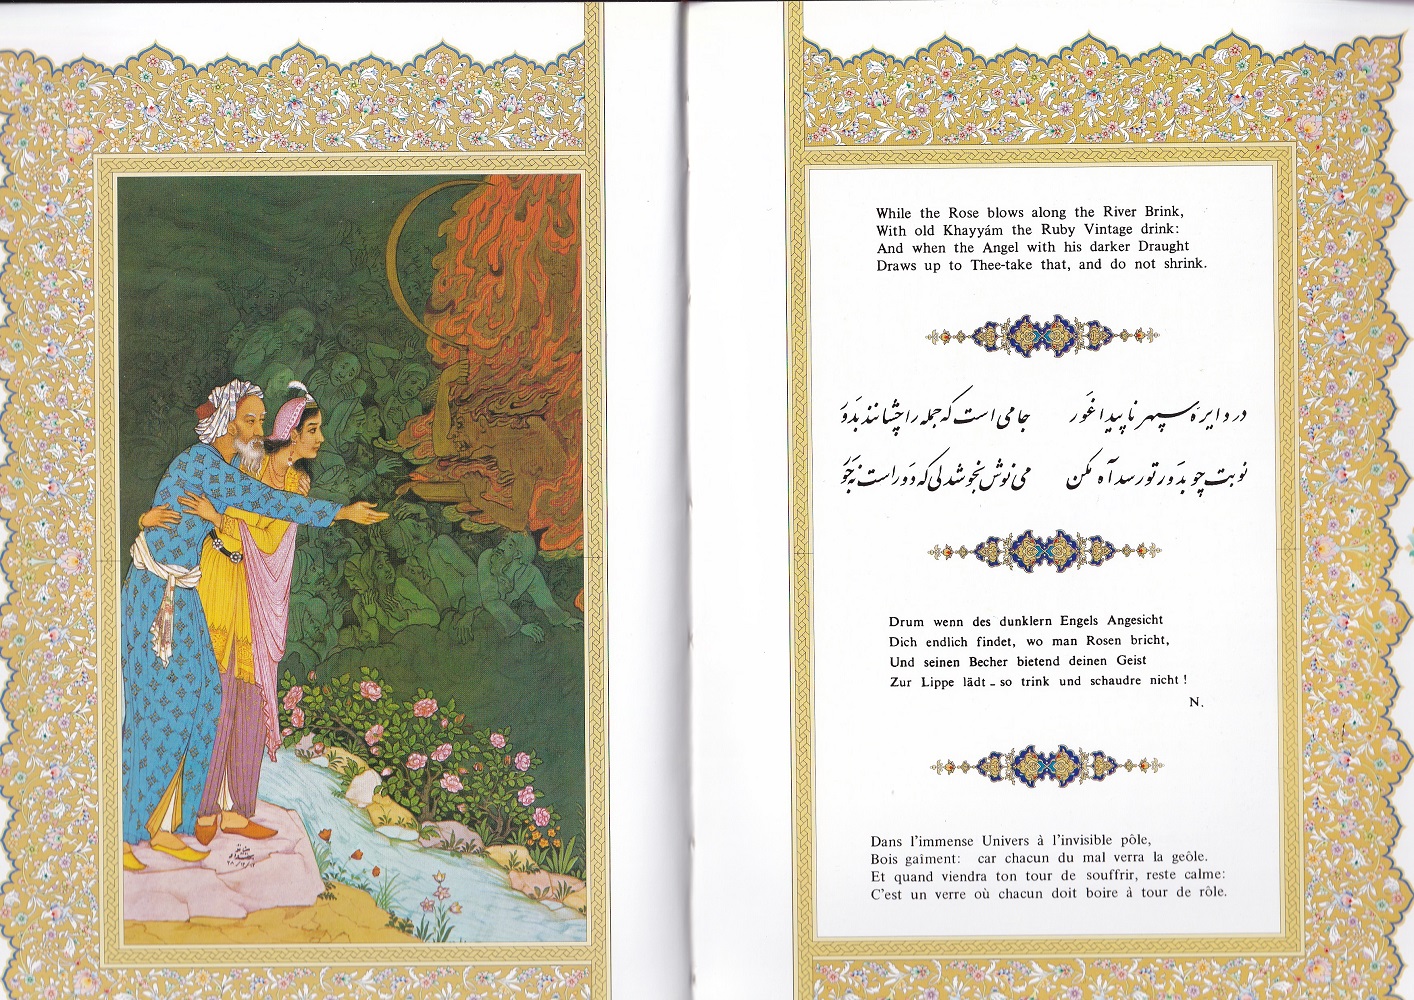 While the Rose blows along the River Brink,
With old Khayyám the Ruby Vintage drink:
And when the Angel with his darker Draught
Draws up to Thee-take that, and do not shrink.
در دایرهٔ سپهر ناپیدا غَور جامی است که جمله را چشانند بدَور
نوبت چو بدَور تو رسد آه مکن می نوش بخوشدلی که دَور است نه جَور
Drum wenn des dunklern Engels Angesicht
Dich endlich findet, wo man Rosen bricht,
Und seinen Becher bietend deinen Geist
Zur Lippe lädt - so trink und schaudre nicht !
N.
Dans l'immense Univers à l'invisible pôle,
Bois gaîment: car chacun du mal verra la geôle.
Et quand viendra ton tour de souffrir, reste calme:
C'est un verre où chacun doit boire à tour de rôle.